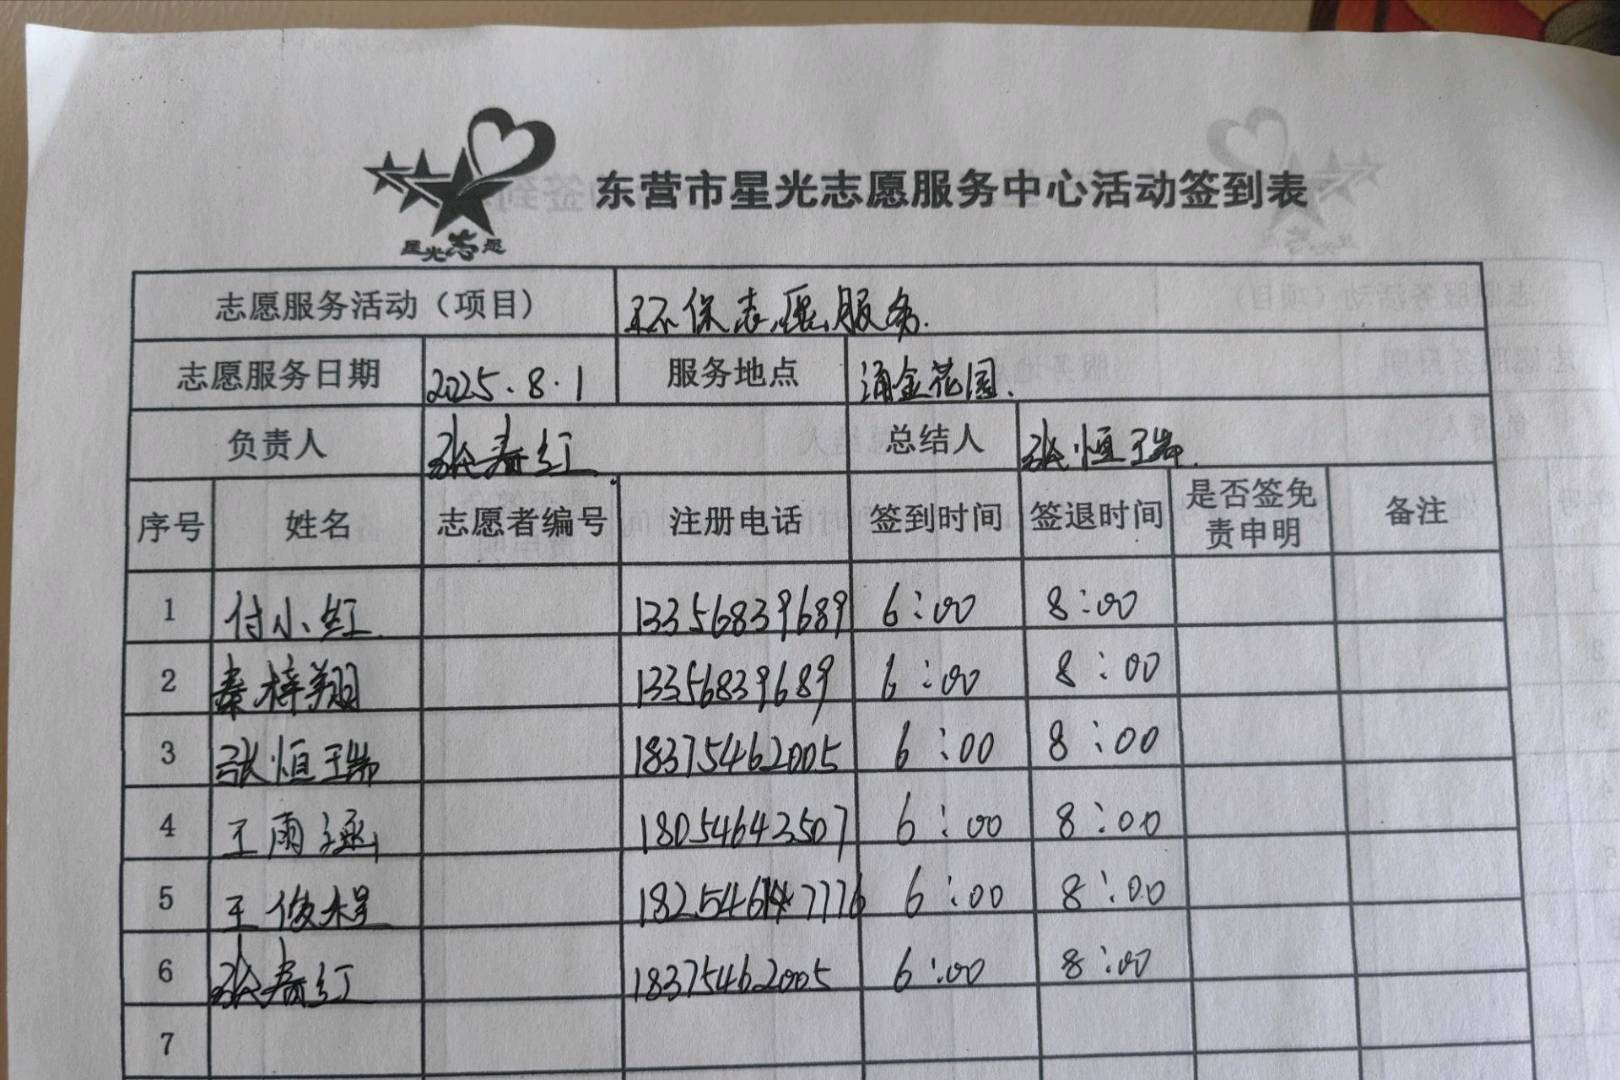 星光志愿
东营市星光志愿服务中心活动签到表
志愿服务活动（项目） 环保志愿服务.
志愿服务日期 2025.8.1 服务地点 涌金花园.
负责人 张春红 总结人 张恒瑞.
序号 姓名 志愿者编号 注册电话 签到时间 签退时间 是否签免责申明 备注
1 付小红 13356839689 6:00 8:00
2 秦梓翔 13356839689 6:00 8:00
3 张恒瑞 18375462005 6:00 8:00
4 王雨涵 18054643507 6:00 8:00
5 王俊程 6:00 8:00
6 张春红 18375462005 6:00 8:00
7